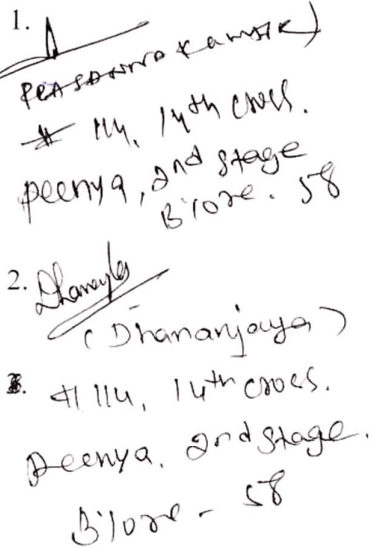 1.
PRASANNA KAMATH)
# 114, 14th cross.
peenya, 2nd Stage
B'lore. 58
2. Dhananjaya
(Dhananjaya)
# 114, 14th cross.
Peenya. 2nd Stage.
B'lore - 58